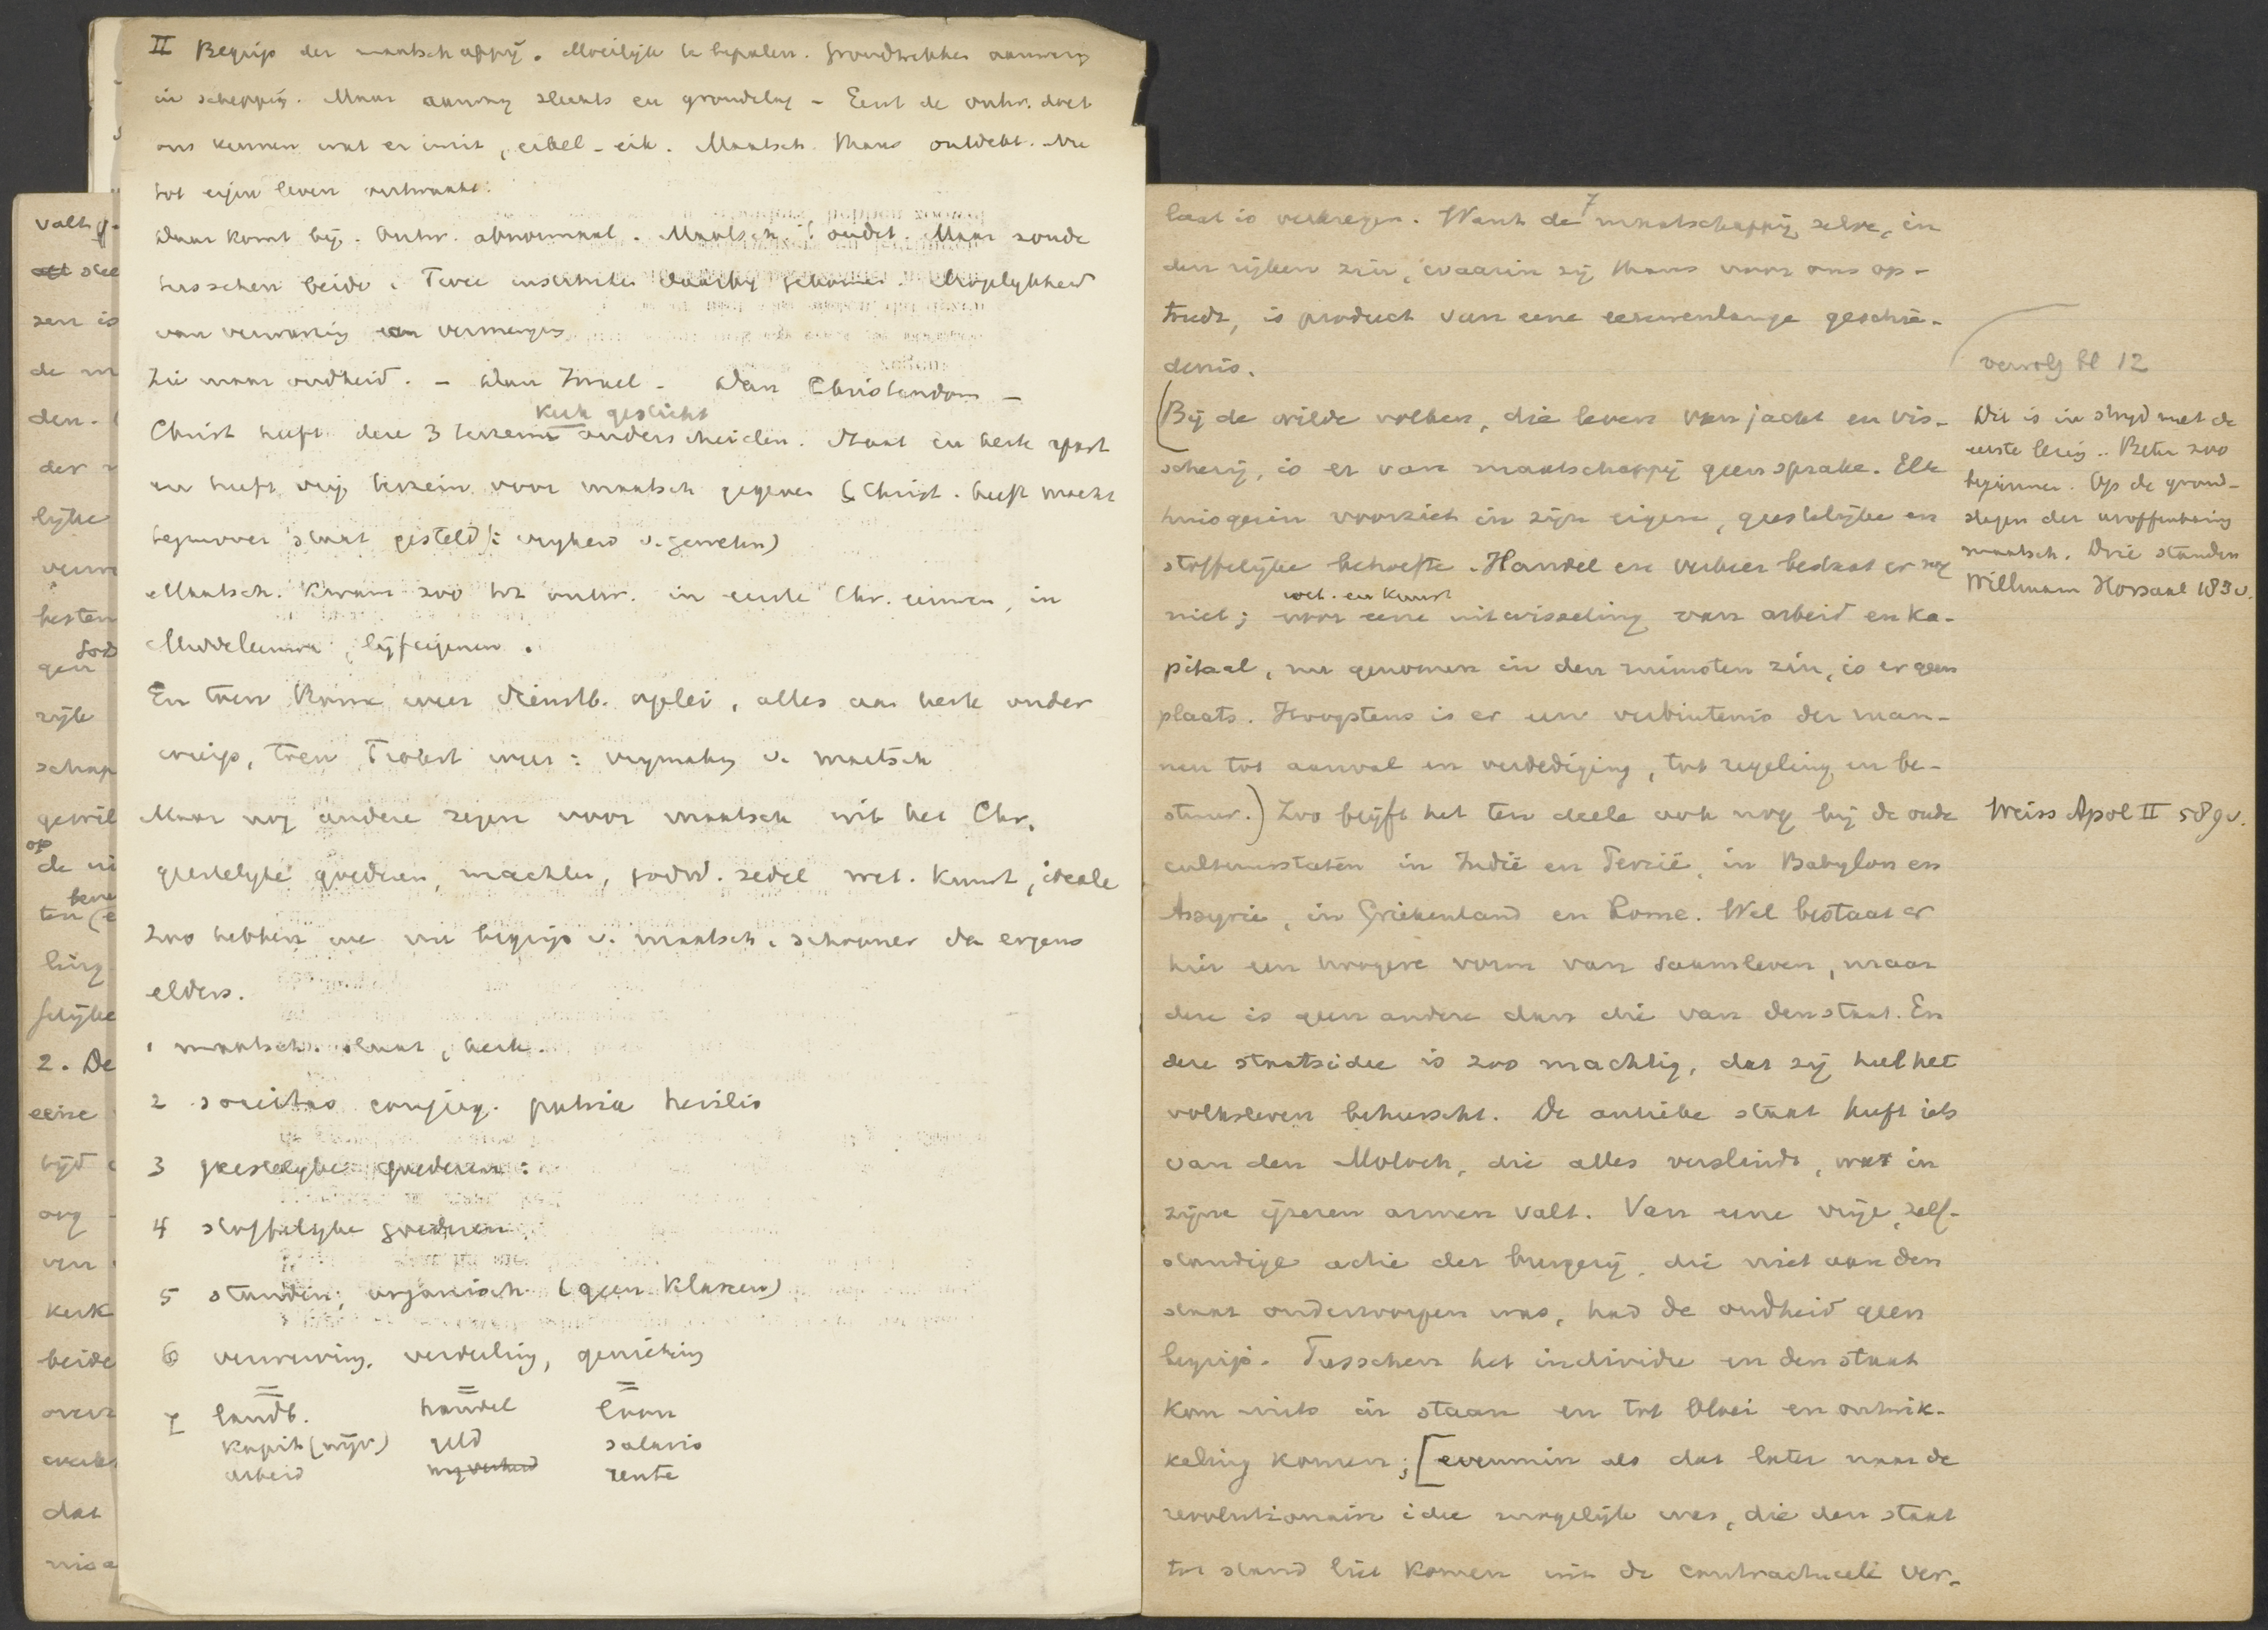 II Begrip der maatschappij. Moeilijk te bepalen. Grondtrekken aanwezig
in schepping. Maar aanleg slechts en grondslag - Eerst de ontw. doet
ons kennen wat er in zit, eikel - eik. Maatsch. thans ontdekt. Nu
tot eigen leven ontwaakt.
Daar komt bij. Ontw. abnormaal. Maatsch. is oudst. Maar zonde
tusschen beide. Twee instituten daarbij gekomen. Mogelijkheid
van verwarring en vermenging
Zie maar oudheid. - Dan Israel - Dan Christendom -
kerk gesticht
Christ heeft deze 3 terreinen onderscheiden. Staat en kerk apart
en heeft vrij terrein voor maatsch gegeven (Christ. heeft macht
tegenover staat gesteld: vrijheid v. geweten)
Maatsch. kwam zoo tot ontw. in eerste Chr. eeuwen, in
Middeleeuwen, lijfeigenen.
En toen Rome weer dienstb. oplei, alles aan kerk onder
wierp, toen Protest weer: vrijmaking v. maatsch
Maar nog andere zegen voor maatsch uit het Chr.
geestelyke goederen, machten, godsd. zedel wet. kunst, ideale
Zoo hebben we nu begrip v. maatsch. schooner dan ergens
elders.
1 maatsch. staat, kerk.
2 societas conjug. patria herilis
3 geestelyke goederen:
4 stoffelyke goederen
5 standen, organisch (geen klassen)
6 verwerving, verdeeling, genieting
7 landb. handel loon
kapit (nijv.) geld salaris
arbeid nijverheid rente
valt g-
zen is
den.
lyke
gen
God
zijk
schap
gewil
op
ling
2. De
eene
org
kerk
beide
dat
7
laat is verkregen. Want de maatschappij zelve, in
den rijken zin, waarin zij thans voor ons op-
treedt, is product van eene eeuwenlange geschie-
denis.
(Bij de wilde volken, die leven van jacht en vis-
scherij, is er van maatschappij geen sprake. Elk
huisgezin voorziet in zijn eigene, geestelijke en
stoffelijke behoefte. Handel en verkeer bestaat er nog
wet. en kunst
niet; voor eene uitwisseling van arbeid en ka-
pitaal, nu genomen in den ruimsten zin, is er geen
plaats. Hoogstens is er een verbintenis der man-
nen tot aanval en verdediging, tot regeling en be-
stuur.) Zoo blijft het ten deele ook nog bij de oude
cultuurstaten in Indië en Perzië, in Babylon en
Assyrie, in Griekenland en Rome. Wel bestaat er
hier een hoogere vorm van saamleven, maar
deze is geen andere dan die van den staat. En
deze staatsidee is zoo machtig, dat zij heel het
volksleven beheerscht. De antieke staat heeft iets
van den Moloch, die alles verslindt, wat in
zijne ijzeren armen valt. Van eene vrije, zelf-
standige actie der burgerij, die niet aan den
staat onderworpen was, had de oudheid geen
begrip. Tusschen het individu en den staat
kon niets in staan en tot bloei en ontwik-
keling komen; [evenmin als dat later naar de
revolutionaire idee mogelijk was, die den staat
tot stand liet komen uit de contractueele ver-
vervolg bl 12
Dit is in strijd met de
eerste lezing. Beter zoo
beginnen. Op de grond-
slagen der uroffenbaring
maatsch. Drie standen
Willmann Horsaal 183 v.
Weiss Apol II 589 v.